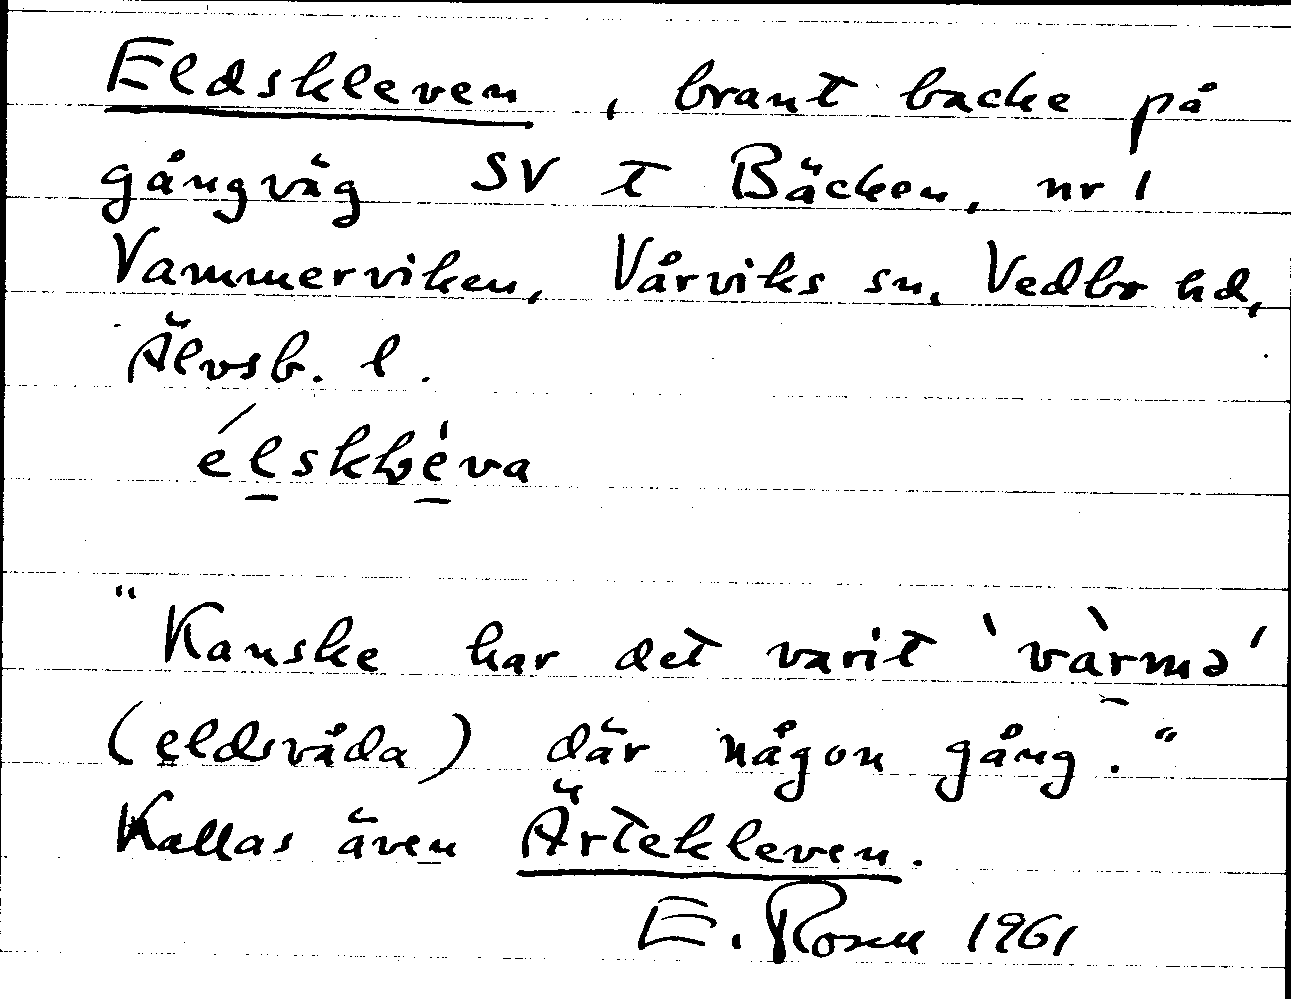 Eldskleven, brant backe på
gångväg SV t Bäcken, nr 1
Vammerviken, Vårviks sn, Vedbo hd,
Älvsb. l.
"Kanske har det varit 'vàrmə'
(eldsvåda) där någon gång."
Kallas även Ärtekleven.
E. Rosen 1961